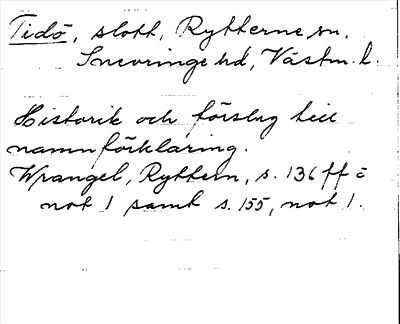 Tidö, slott, Rytterne sn,
Snevringe hd, Västm. l.
Historik och förslag till
namnförklaring.
Wrangel, Ryttern, s. 136 ff =
not 1 samt s. 155, not 1.